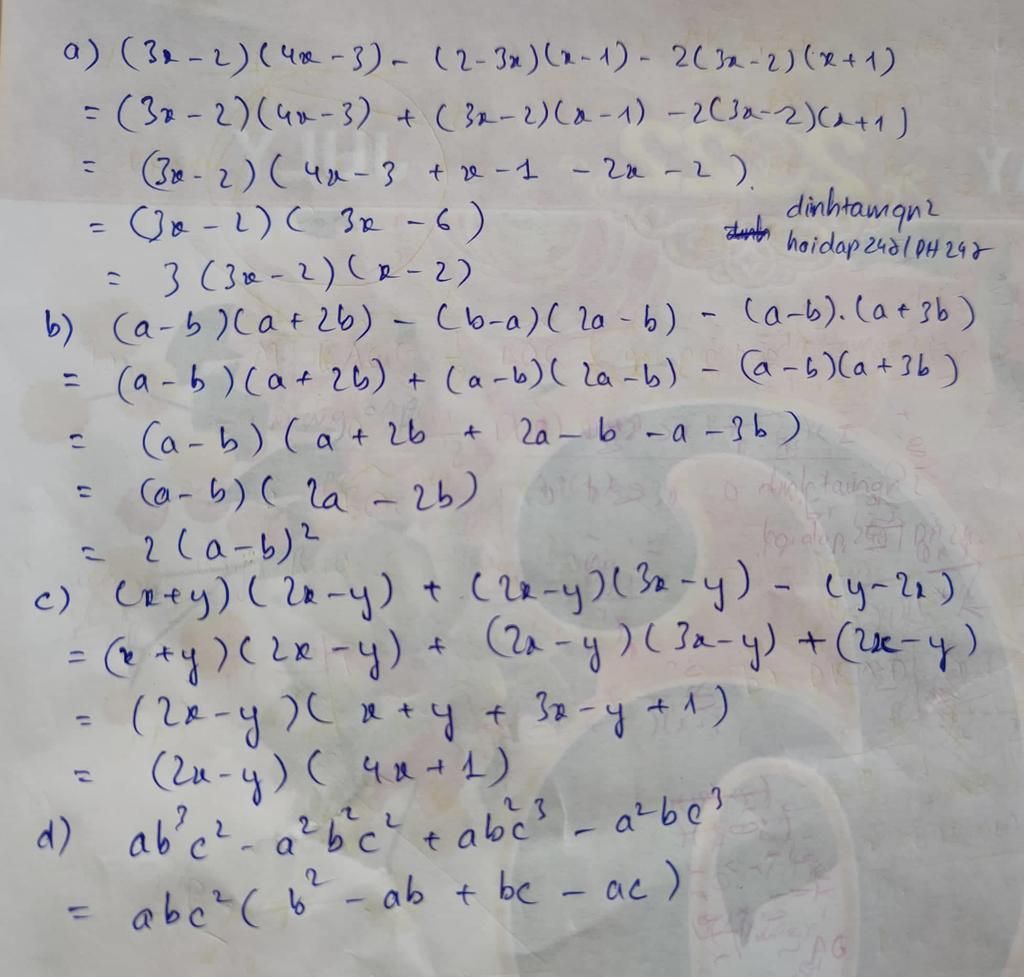 a) (3x - 2)(4x - 3) - (2 - 3x)(x - 1) - 2(3x - 2)(x + 1)
= (3x - 2)(4x - 3) + (3x - 2)(x - 1) - 2(3x - 2)(x + 1)
= (3x - 2)( 4x - 3 + x - 1 - 2x - 2 ).
= (3x - 2)( 3x - 6)
dinhtamqn2
hoidap247/PH247
= 3 (3x - 2)(x - 2)
b) (a - b)(a + 2b) - (b - a)( 2a - b) - (a - b).(a + 3b)
= (a - b)(a + 2b) + (a - b)( 2a - b) - (a - b)(a + 3b)
= (a - b) (a + 2b + 2a - b - a - 3b)
= (a - b)( 2a - 2b)
= 2(a - b)²
c) (x + y)(2x - y) + (2x - y)(3x - y) - (y - 2x)
= (x + y)(2x - y) + (2x - y)(3x - y) + (2x - y)
= (2x - y)( x + y + 3x - y + 1)
= (2x - y)( 4x + 1)
d) ab³c² - a²b²c² + ab²c³ - a²bc³
= abc²( b² - ab + bc - ac)